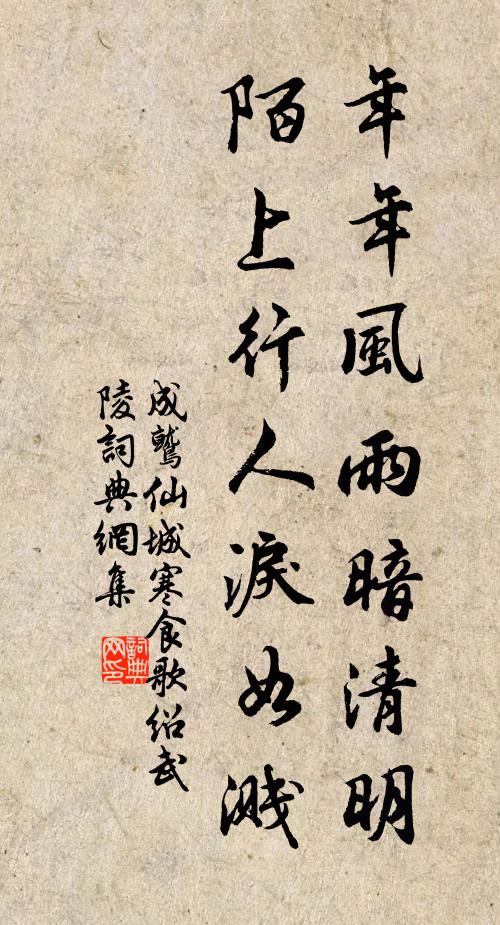 年年風雨暗清明
陌上行人淚如濺
成鷲仙城寒食歌紹武
陵詞典網集
詞典
网印